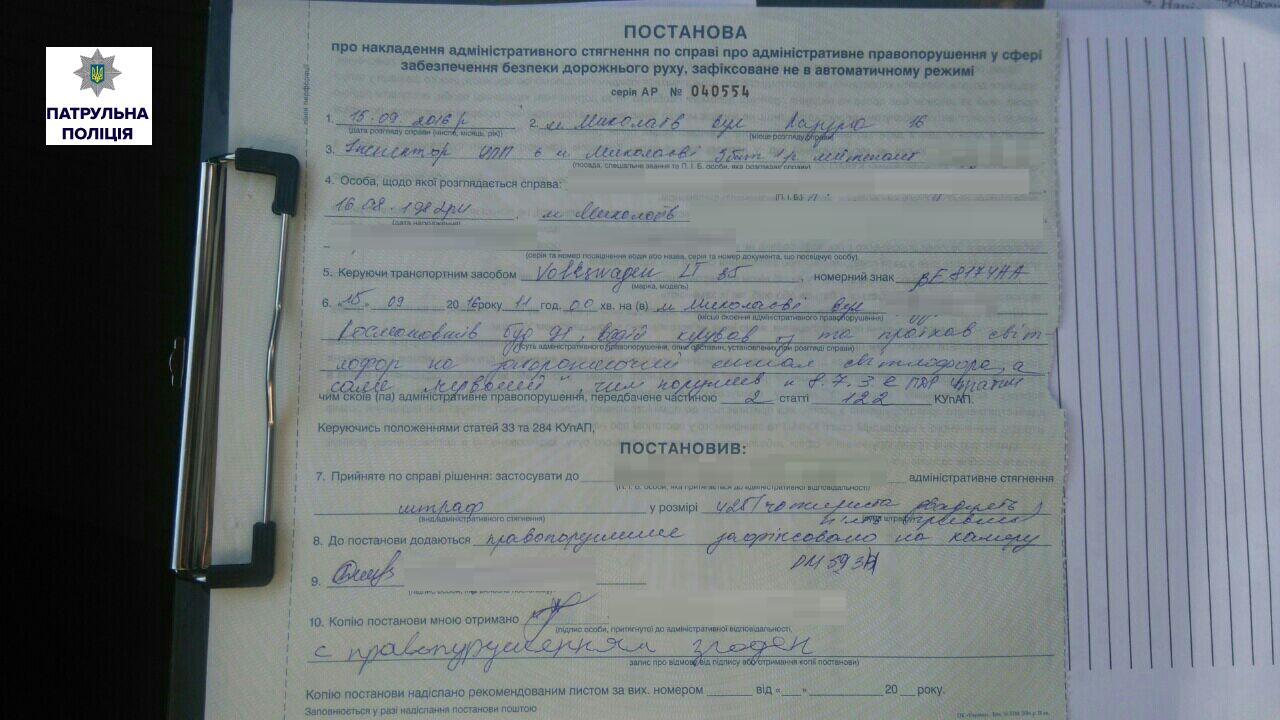 ПАТРУЛЬНА
ПОЛІЦІЯ
ПОСТАНОВА
про накладення адміністративного стягнення по справі про адміністративне правопорушення у сфері
забезпечення безпеки дорожнього руху, зафіксоване не в автоматичному режимі
серія АР № 040554
1. 15.09 2016 р 2. м Миколаїв вул 16
(дата розгляду справи (число, місяць, рік)) (місце розгляду справи)
3. Інспектор УПП в м Миколаєві лейтенант
(посада, спеціальне звання та П. І. Б. особи, яка розглядає справу)
4. Особа, щодо якої розглядається справа:
(П. І. Б.)
16.08.1982 м Миколаїв
(дата народження)
(серія та номер посвідчення водія або назва, серія та номер документа, що посвідчує особу)
5. Керуючи транспортним засобом Volkswagen LT 35, номерний знак ВЕ8174АА
(марка, модель)
6. „15" 09 2016 року 11 год. 00 хв. на (в) м Миколаєві вул
(місце скоєння адміністративного правопорушення)
буд 91 водій керував та проїхав світ
(суть адміністративного правопорушення, опис обставин, установлених при розгляді справи)
лофор на забороняючий сигнал світлофора, а
саме „червоний", чим порушив п 8.7.3 е ПДР
чим скоїв (ла) адміністративне правопорушення, передбачене частиною 2 статті 122 КУпАП.
Керуючись положеннями статей 33 та 284 КУпАП,
ПОСТАНОВИВ:
7. Прийняте по справі рішення: застосувати до адміністративне стягнення
(П. І. Б. особи, яка притягається до адміністративної відповідальності)
штраф у розмірі 425 (чотириста двадцять
(вид адміністративного стягнення)
п'ять гривень)
8. До постанови додаються правопорушення зафіксовано на камеру
DM 593
9.
10. Копію постанови мною отримано
(підпис особи, притягнутої до адміністративної відповідальності,
с правопурушенням згоден
запис про відмову від підпису або отримання копії постанови)
Копію постанови надіслано рекомендованим листом за вих. номером від «__» 20 __ року.
Заповнюється у разі надіслання постанови поштою